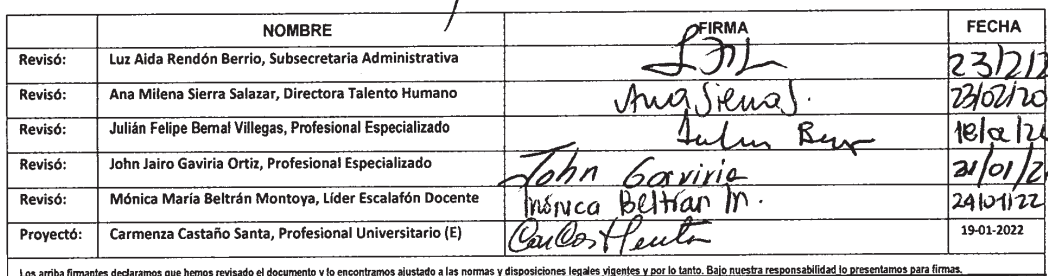 NOMBRE FIRMA FECHA
Revisó: Luz Aida Rendón Berrio, Subsecretaria Administrativa 23/2/2
Revisó: Ana Milena Sierra Salazar, Directora Talento Humano Ana Sierra S. 23/02/20
Revisó: Julián Felipe Bernal Villegas, Profesional Especializado 18/
Revisó: John Jairo Gaviria Ortiz, Profesional Especializado John Gaviria /01/2
Revisó: Mónica María Beltrán Montoya, Líder Escalafón Docente Mónica Beltrán M. 24/01/22
Proyectó: Carmenza Castaño Santa, Profesional Universitario (E) 19-01-2022
Los arriba firmantes declaramos que hemos revisado el documento y lo encontramos ajustado a las normas y disposiciones legales vigentes y por lo tanto. Bajo nuestra responsabilidad lo presentamos para firmas.